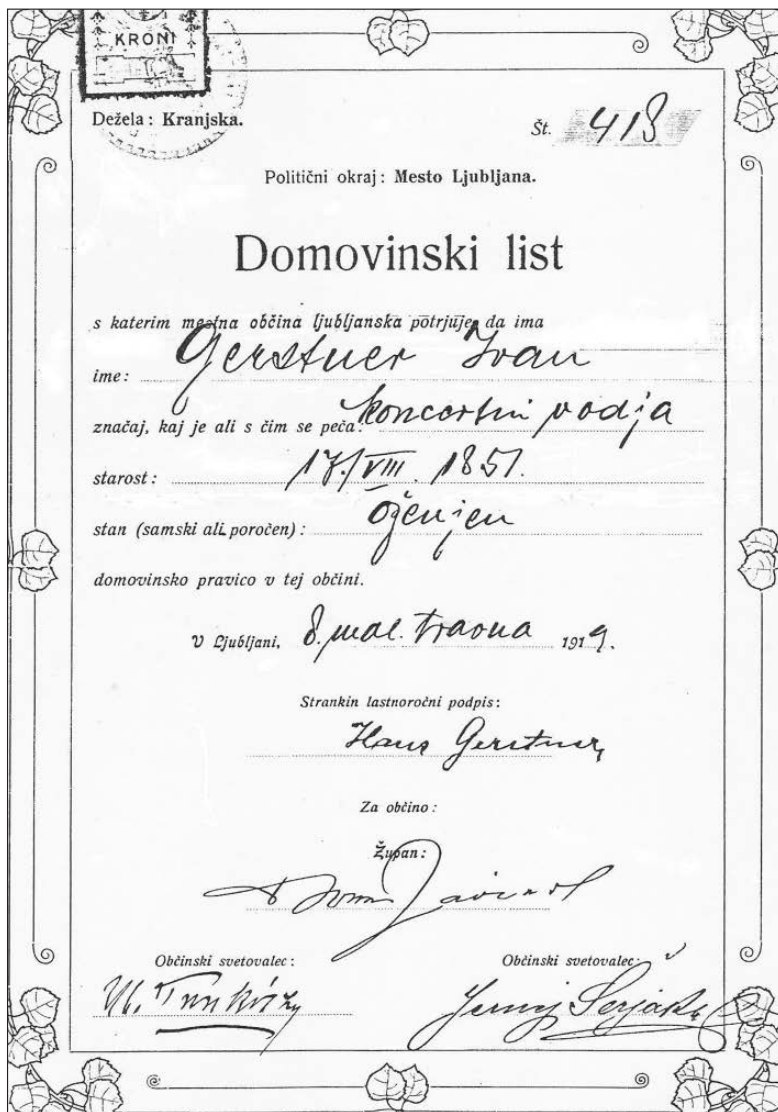 KRONI
Dežela: Kranjska.
Št. 418
Politični okraj: Mesto Ljubljana.
Domovinski list
s katerim mestna občina ljubljanska potrjuje, da ima
ime: Gerstner Ivan
značaj, kaj je ali s čim se peča: koncertni vodja
starost: 17./VIII. 1851.
stan (samski ali poročen): Oženjen
domovinsko pravico v tej občini.
V Ljubljani, 8. mal. travna 1919.
Strankin lastnoročni podpis:
Hans Gerstner
Za občino:
Župan:
Občinski svetovalec: Občinski svetovalec:
Jernej